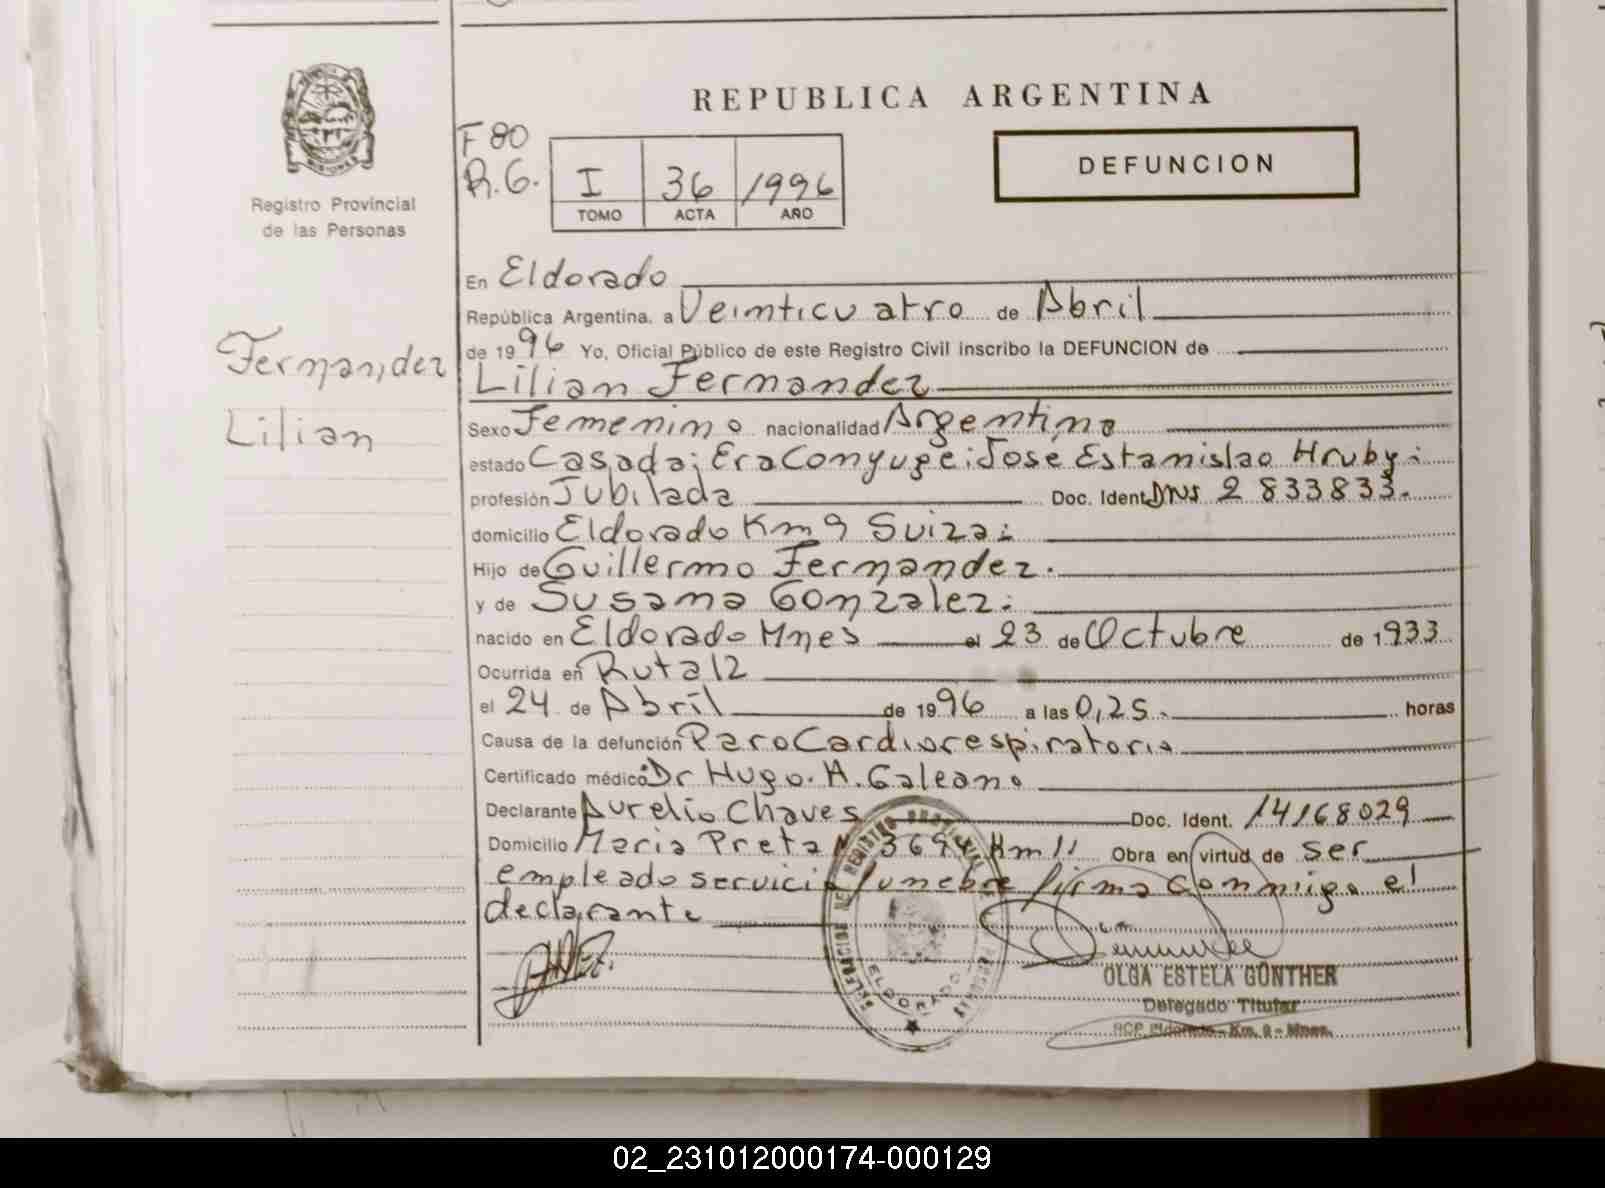 REPUBLICA ARGENTINA
MISIONES
Registro Provincial
de las Personas
F 80
R.G.
I 36 1996
TOMO ACTA AÑO
DEFUNCION
Fernandez
Lilian
En Eldorado
República Argentina, a Veinticuatro de Abril
de 1996 Yo, Oficial Público de este Registro Civil inscribo la DEFUNCION de
Lilian Fernandez
Sexo Femenino nacionalidad Argentina
estado Casada; Era Conyuge: Jose Estanislao Hruby;
profesión Jubilada Doc. Ident. DNI 2 833833.
domicilio Eldorado Km 9 Suiza;
Hijo de Guillermo Fernandez.
y de Susana Gonzalez;
nacido en Eldorado Mnes el 23 de Octubre de 1933
Ocurrida en Ruta 12
el 24 de Abril de 1996 a las 0,25. horas
Causa de la defunción Paro Cardiorespiratorio
Certificado médico Dr Hugo. A. Galeano
Declarante Aurelio Chaves Doc. Ident. 14168029
Domicilio Maria Preta N 3694 Km 11 Obra en virtud de ser
empleado servicio funebre firma conmigo el
declarante
ELDORADO
OLGA ESTELA GÜNTHER
Delegado Titular
RCP Eldorado - Km. 9 - Mnes.
02_231012000174-000129